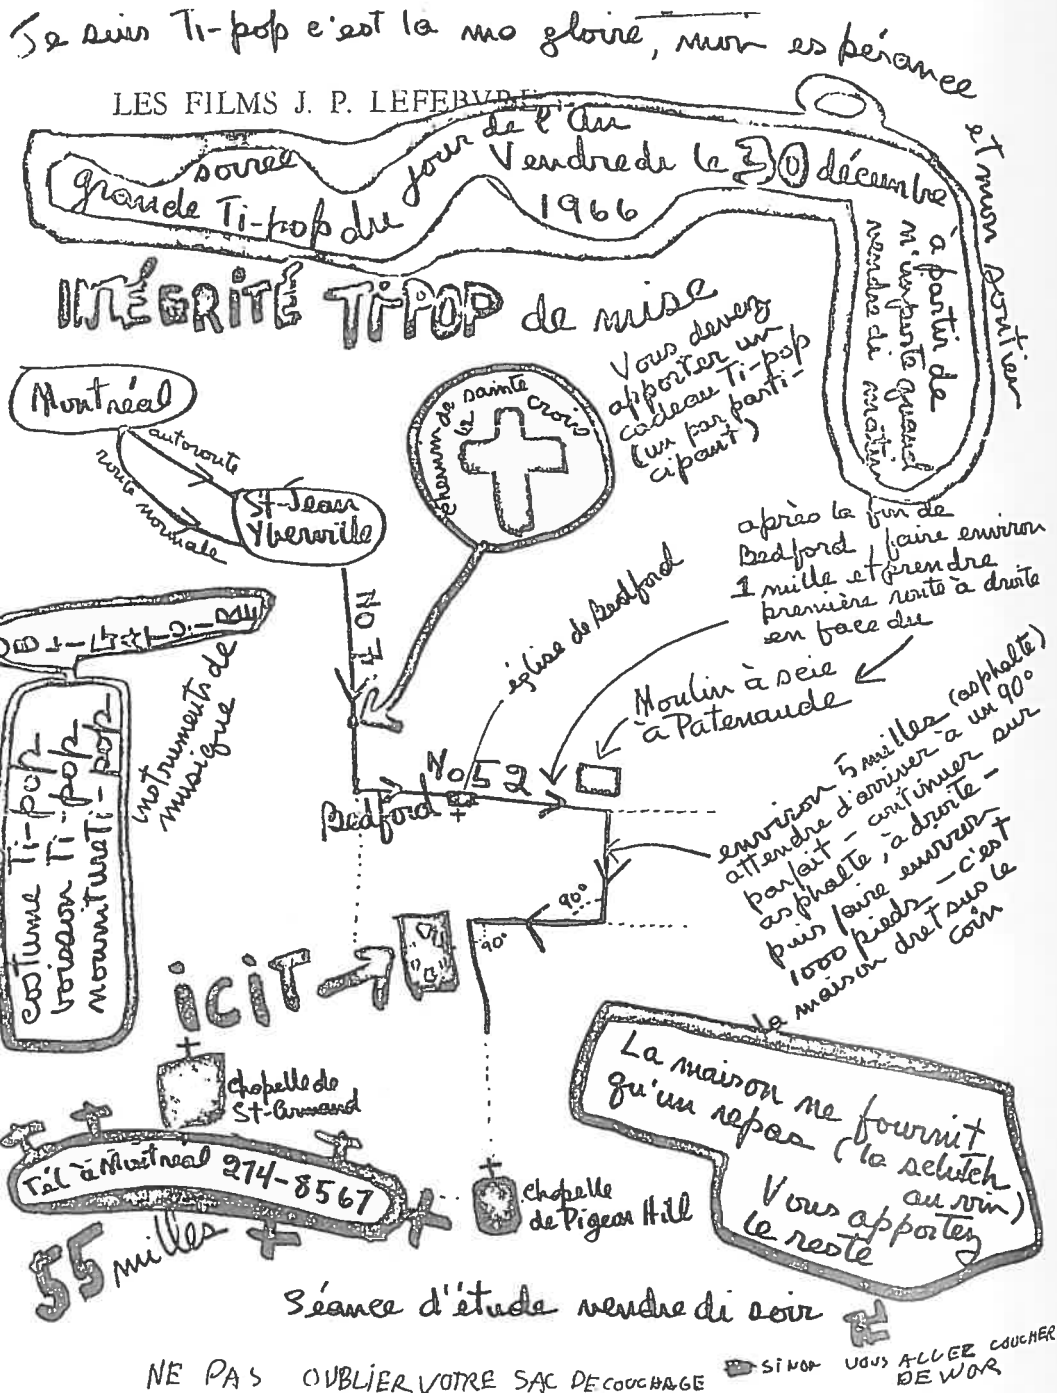 Je suis Ti-pop c'est la ma gloire, mon espérance
et mon soutien
LES FILMS J. P. LEFEBVRE
grande soirée Ti-pop du jour de l'An
Vendredi le 30 décembre
1966
à partir de
n'importe quand
vendredi matin
INTÉGRITÉ Ti-POP de mise
Vous devez
apporter un
cadeau Ti-pop
(un par parti-
cipant)
Montréal
autoroute
route normale
St-Jean
Yberville
chemin de la sainte croix
NO 7
église de Bedford
après la fin de
Bedford faire environ
1 mille et prendre
première route à droite
en face du
Moulin à scie
à Patenaude
No 52
Bedford
environ 5 milles (asphalte)
attendre d'arriver à un 90°
parfait - continuer sur
asphalte, à droite -
puis faire environ
1000 pieds - c'est
la maison dret sus le
coin
90°
90°
instruments de
musique
costume Ti-pop
boisson Ti-pop
nourriture Ti-pop
iCiT
chapelle de
St-Armand
Tél à Montréal 274-8567
55 milles
chapelle
de Pigeon Hill
La maison ne fournit
qu'un repas (la sclutch
au vin)
Vous apportez
le reste
Séance d'étude vendredi soir
NE PAS OUBLIER VOTRE SAC DE COUCHAGE
SINON VOUS ALLEZ COUCHER
DEWOR